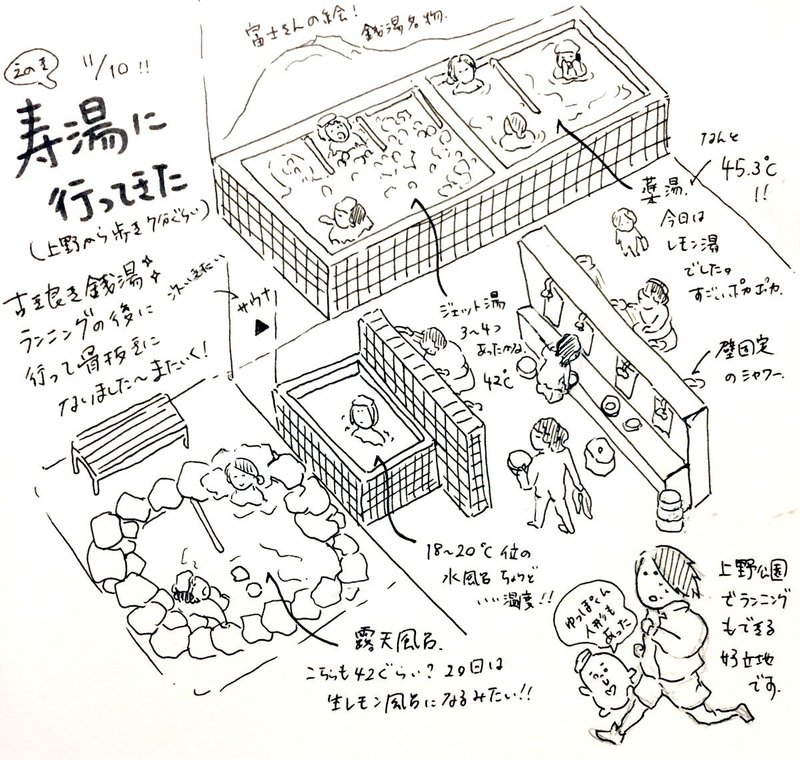 えのき
11/10!!
寿湯に
行ってきた
(上野から歩き7分ぐらい)
古き良き銭湯
ランニングの後に
行って骨抜きに
なりました〜またいく!
富士さんの絵!
銭湯名物.
薬湯.
なんと
45.3℃
!!
今日は
レモン湯
でした。
すごいポカポカ.
ジェット湯
3〜4つ
あったかな.
42℃
壁固定
のシャワー.
次いきたい
サウナ
18〜20℃位の
水風呂 ちょうど
いい温度!!
露天風呂.
こちらも42ぐらい?29日は
生レモン風呂になるみたい!!
ゆっぽくん
人形も
あった
上野公園
でランニング
もできる
好立地
です.